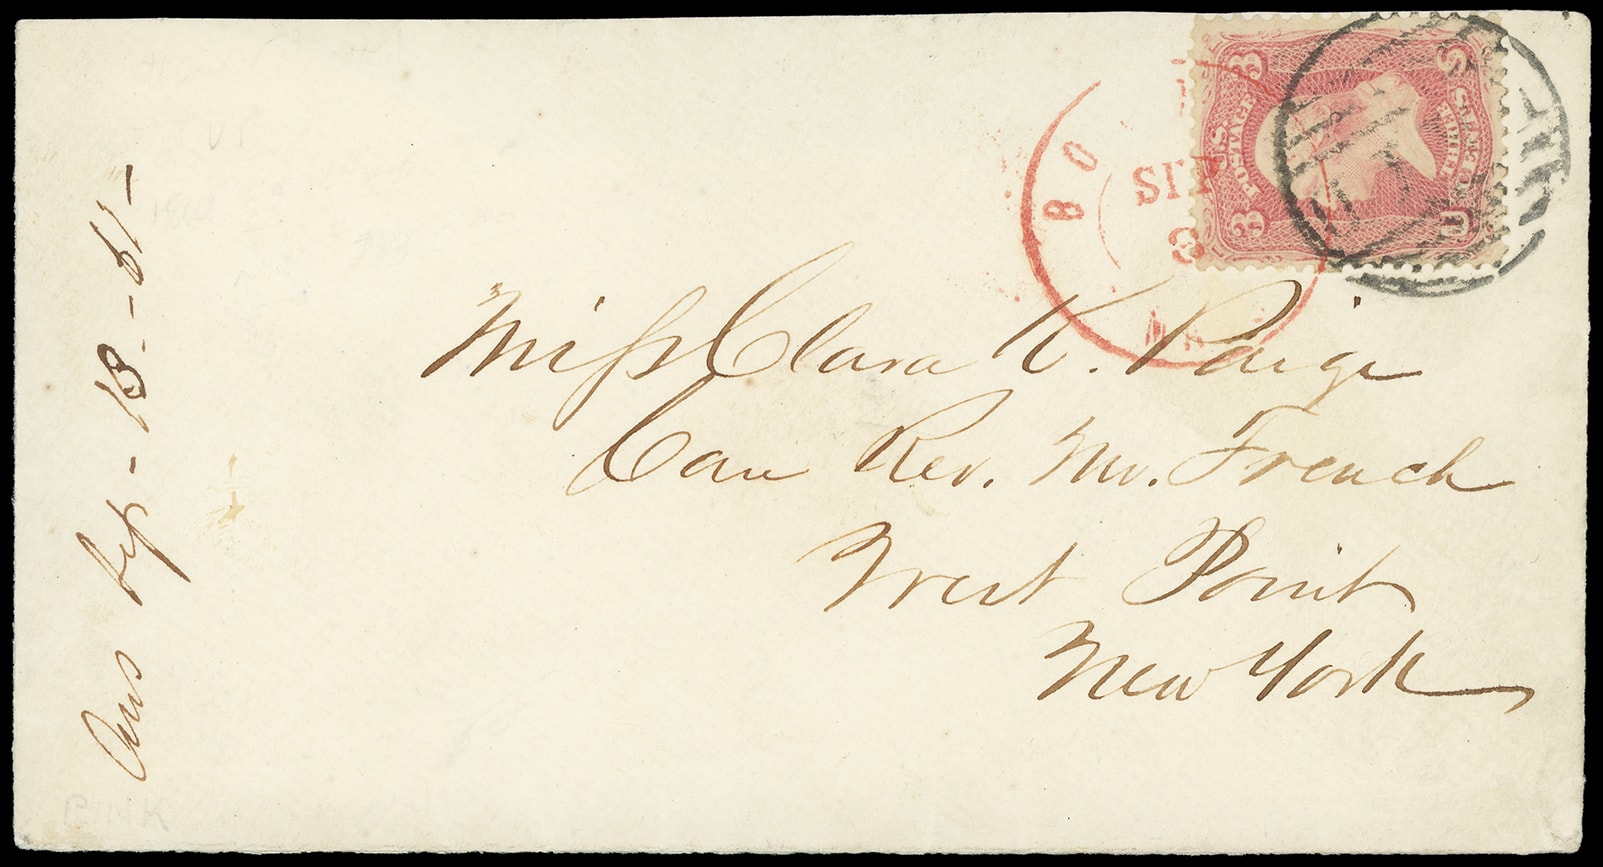 3 3
U.S. POSTAGE
3 U
BO
SEP
8
MA
Miss Clara K. Paige
Care Rev. Mr. French
West Point
New York
Ans Sep - 13 - 61 -
PINK